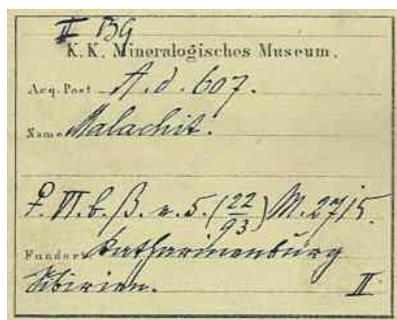 II BG
K. K. Mineralogisches Museum.
Acq. Post A. d. 607.
Name Malachit.
F. VI. b. β. v. 5. (22/93) M. 2715.
Fundort Katharinenburg
Sibirien. II